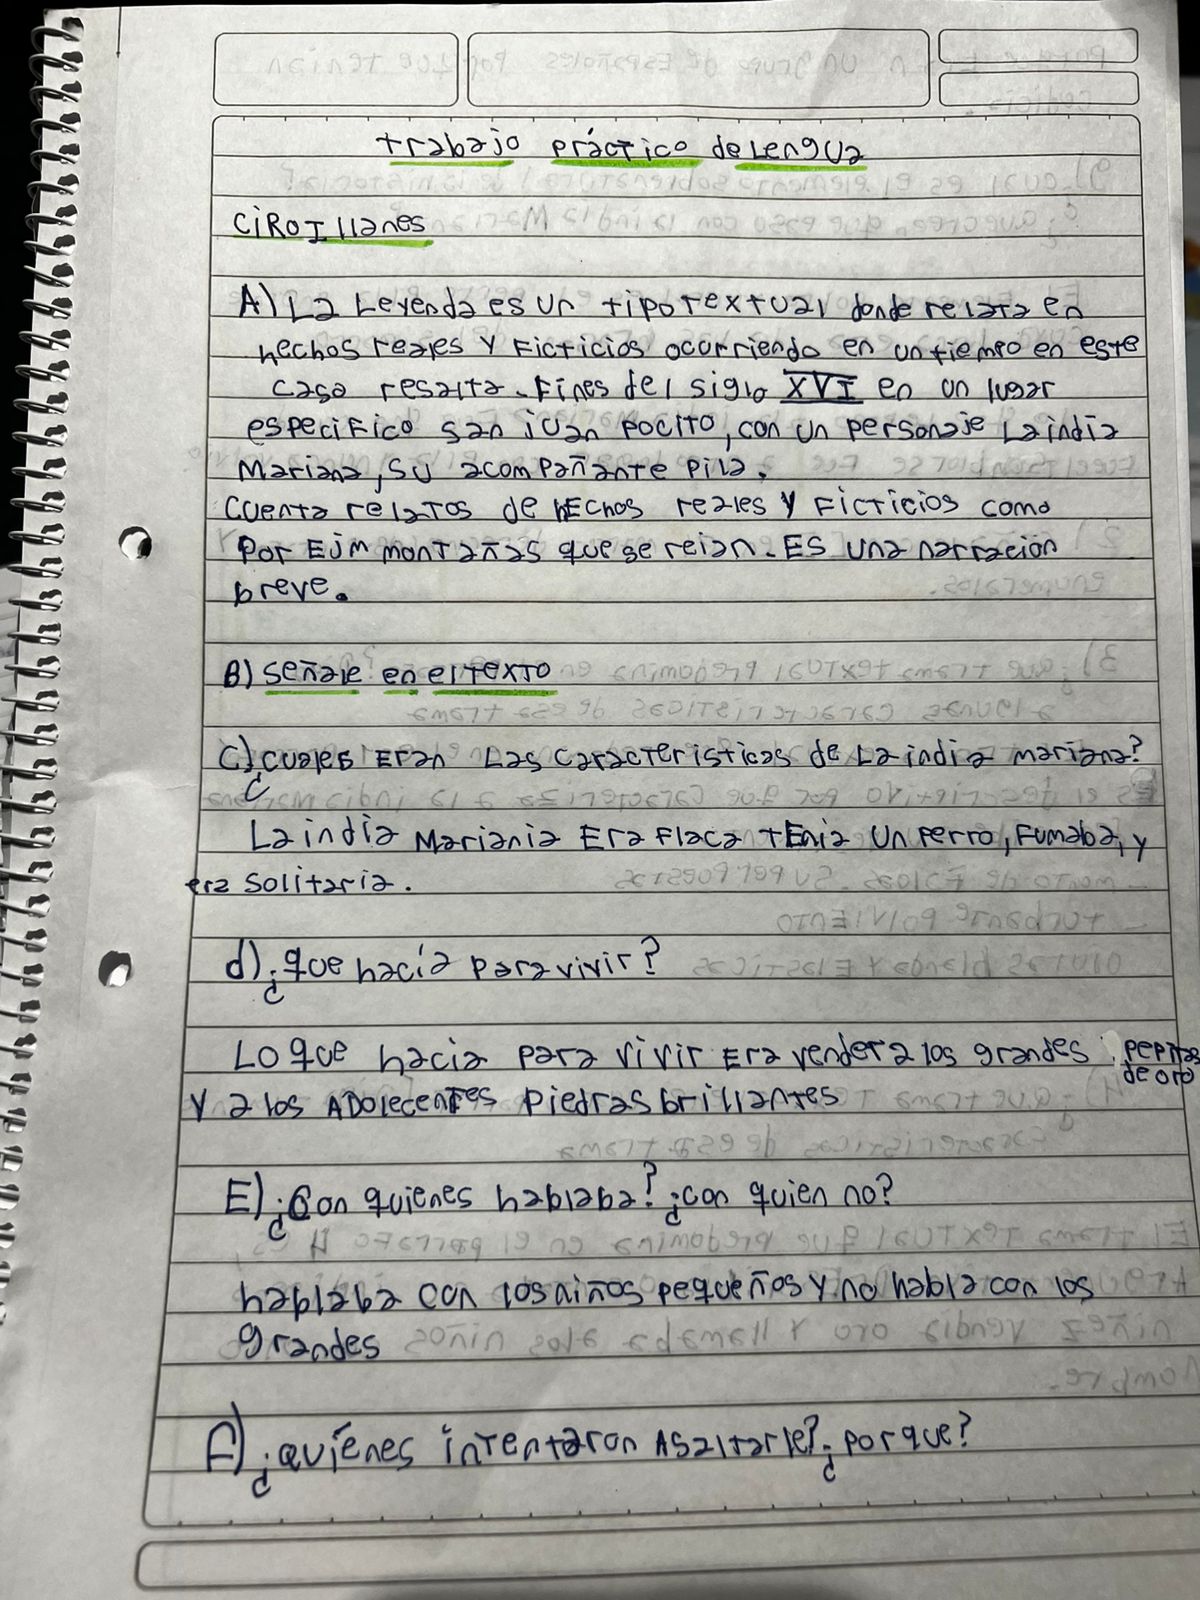 trabajo práctico de Lengua
CiRO Illanes
A) La Leyenda es un tipo textual donde relata en
hechos reales y Ficticios ocurriendo en un tiempo en este
caso resalta. Fines del siglo XVI en un lugar
especifico san juan pocito, con un personaje La india
Mariana, su acompañante pila.
Cuenta relatos de hEchos reales y Ficticios como
por EJm montañas que se reian. ES una narración
breve.
B) señale en el texto
C) ¿cuales Eran Las caracteristicas de La india mariana?
La india Mariania Era Flaca tEnia un perro, Fumaba, y
era solitaria.
d) ¿que hacía para vivir?
Lo que hacia para vivir Era vender a los grandes pepitas
de oro
y a los ADolecentes piedras brillantes
E) ¿Con quienes hablaba? ¿con quien no?
hablaba con los niños pequeños y no habla con los
grandes
F) ¿quíenes intentaron Asaltarle? ¿por que?